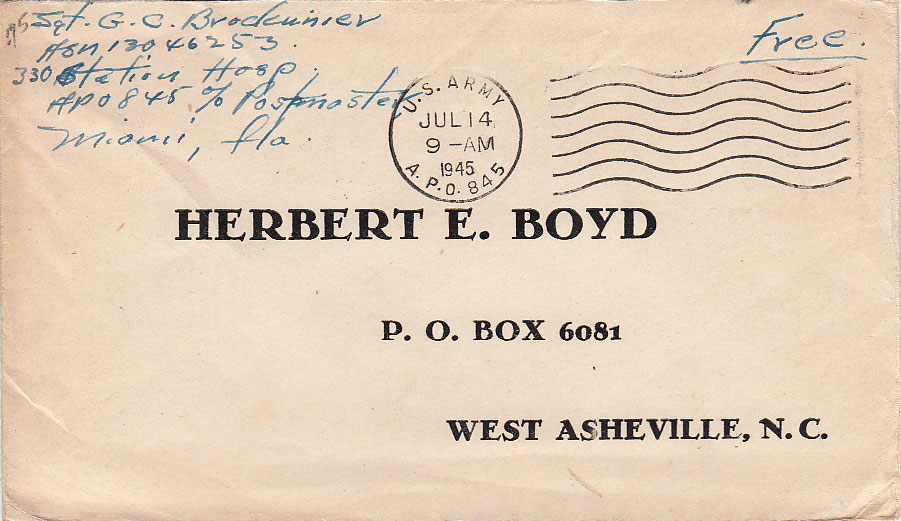 Sgt. G. C. Brockunier
ASN 13046253.
330 Station Hosp.
APO 845 % Postmaster
Miami, Fla.
Free.
U.S. ARMY
JUL 14
9 -AM
1945
A.P.O. 845
HERBERT E. BOYD
P. O. BOX 6081
WEST ASHEVILLE, N. C.